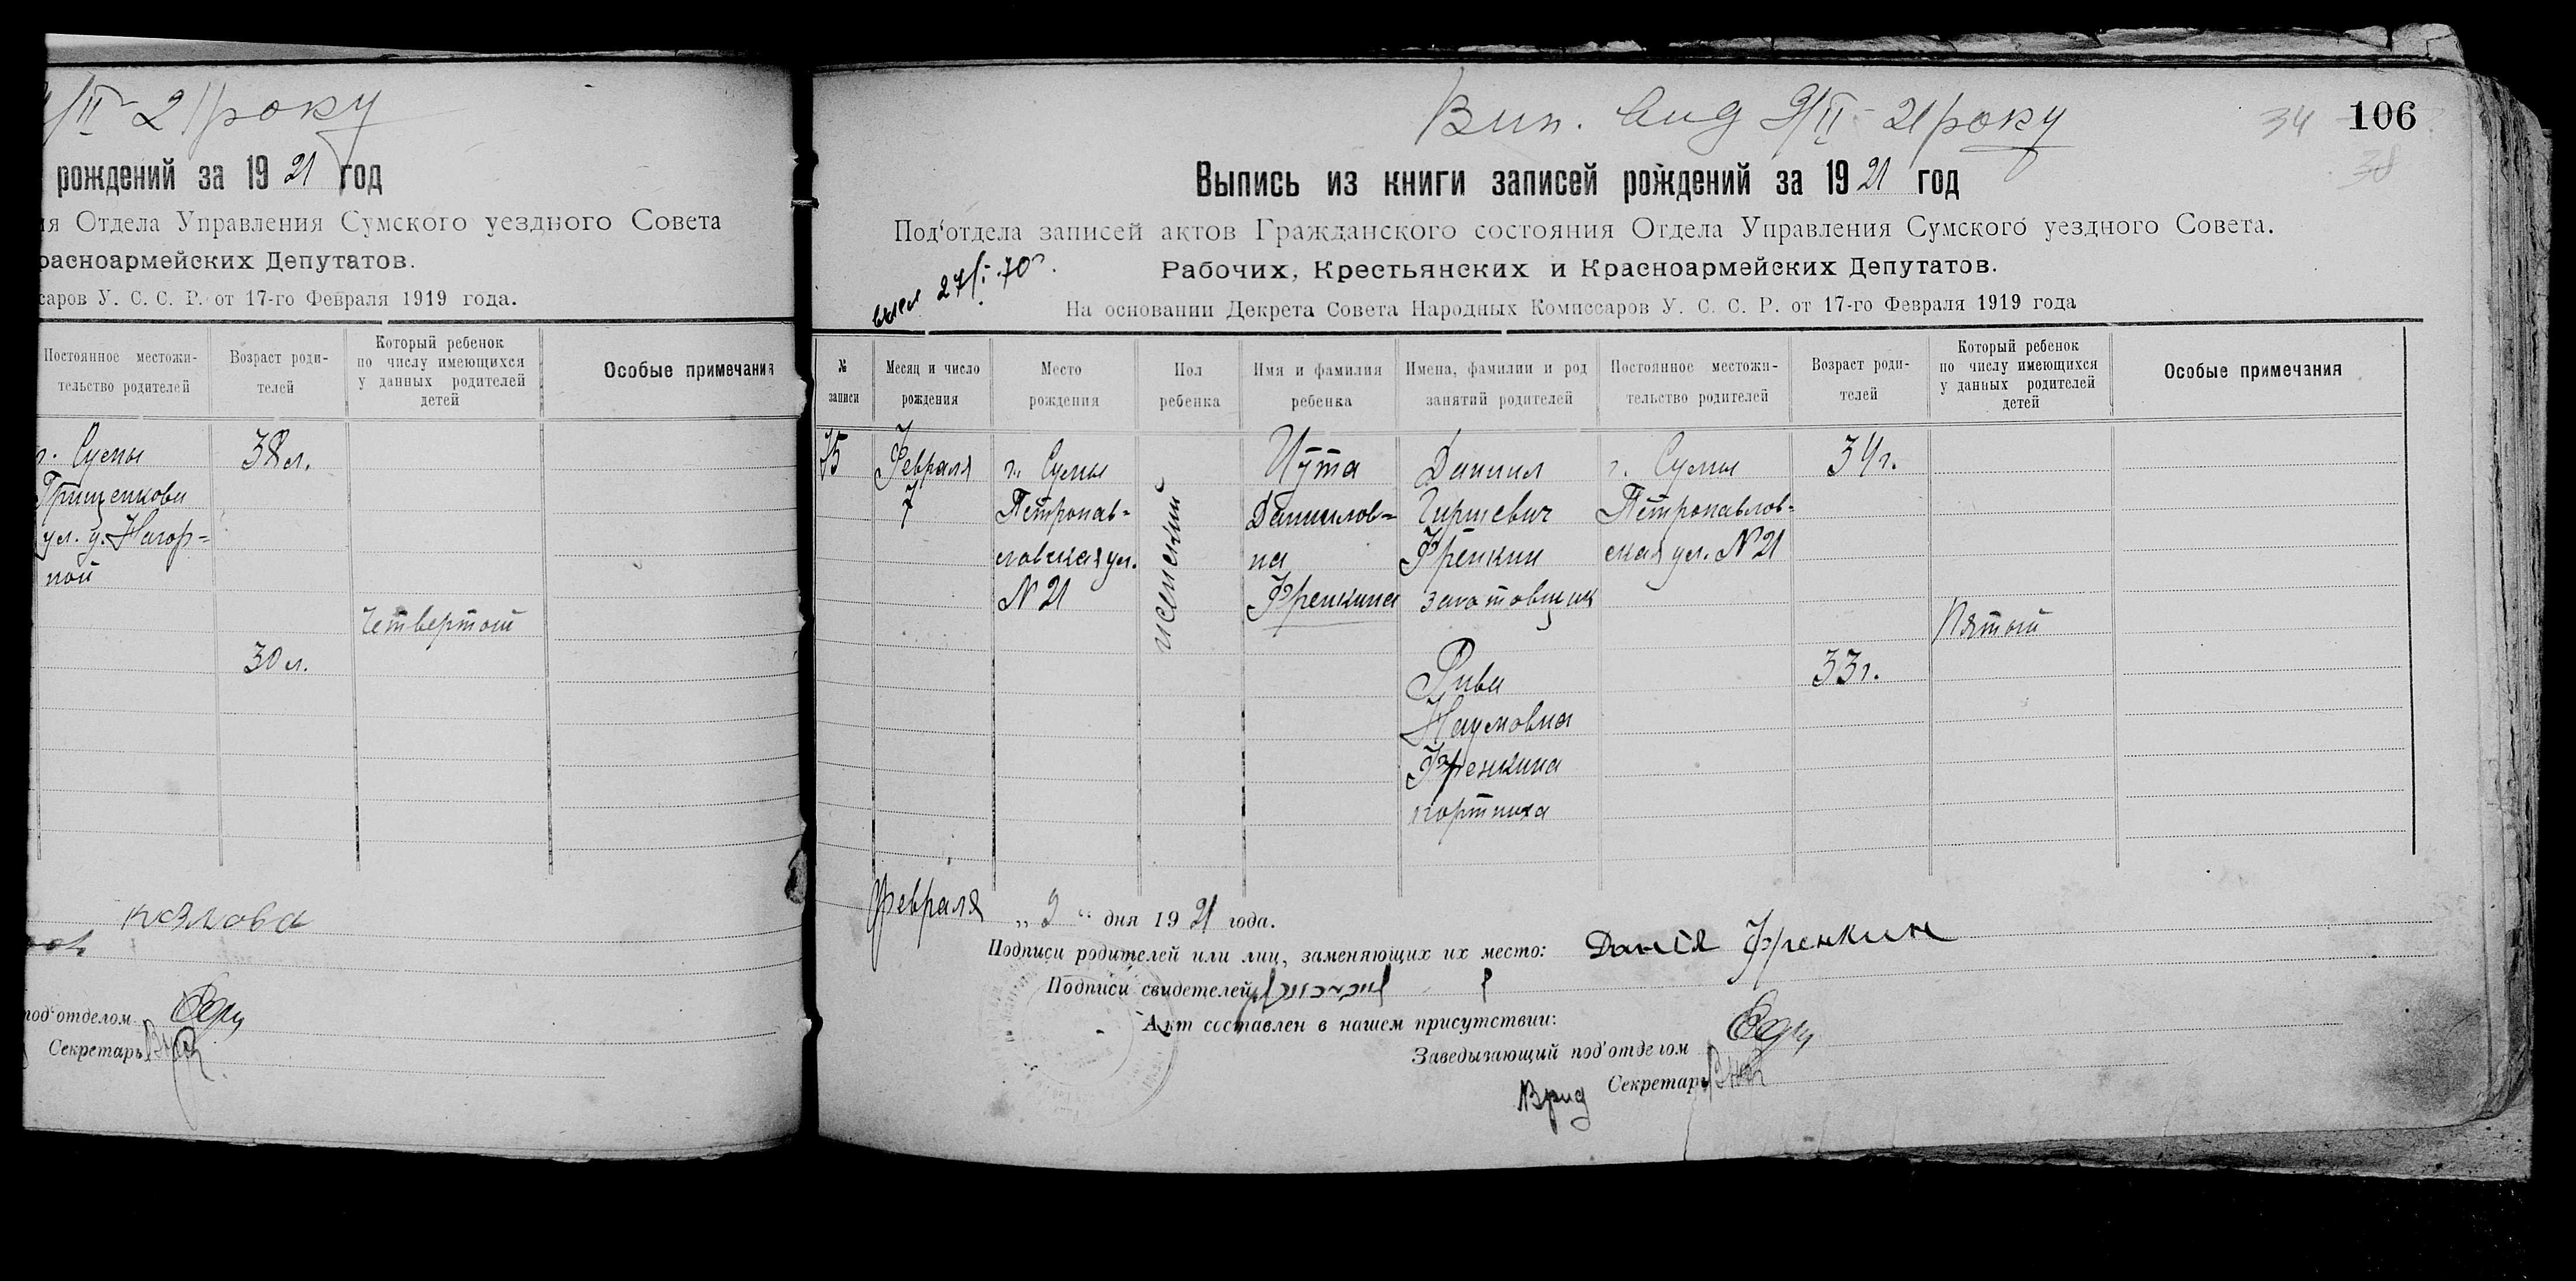 /II - 21 року
рождений за 19 21 год
ия Отдела Управления Сумского уездного Совета
расноармейских Депутатов.
саров У. С. С. Р. от 17-го Февраля 1919 года.
Постоянное местожи-
тельство родителей
Возраст роди-
телей
Который ребенок
по числу имеющихся
у данных родителей
детей
Особые примечания
г. Сумы
38 л.
Грищенкова
ул. у. Нагор=
ной
Четвертый
30 л.
под‘отделом
Секретарь
Вип. вид 9/II - 21 року
34
106
38
Выпись из книги записей рождений за 19 21 год
Под‘отдела записей актов Гражданского состояния Отдела Управления Сумского уездного Совета.
Рабочих, Крестьянских и Красноармейских Депутатов.
27/I 70г.
На основании Декрета Совета Народных Комиссаров У. С. С. Р. от 17-го Февраля 1919 года
№
записи
Месяц и число
рождения
Место
рождения
Пол
ребенка
Имя и фамилия
ребенка
Имена, фамилии и род
занятий родителей
Постоянное местожи-
тельство родителей
Возраст роди-
телей
Который ребенок
по числу имеющихся
у данных родителей
детей
Особые примечания
75
Февраля
7
г. Сумы
Петропав=
ловская ул.
№ 21
женский
Нута
Данилов=
на
Френкина
Даниил
Гиршевич
Френкин
заготовщик
Рива
Наумовна
Френкина
портниха
г. Сумы
Петропавлов-
ская ул. № 21
34 г.
33 г.
Пятый
Февраля „ 9 “ дня 19 21 года.
Подписи родителей или лиц, заменяющих их место: Данiя Френкин
Подписи свидетелей
Акт составлен в нашем присутствии:
Заведывающий под‘отделом
Врид Секретарь